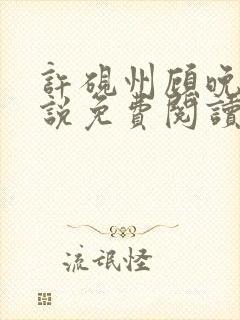 許硯州顾晚
說免費閱讀
流氓怪